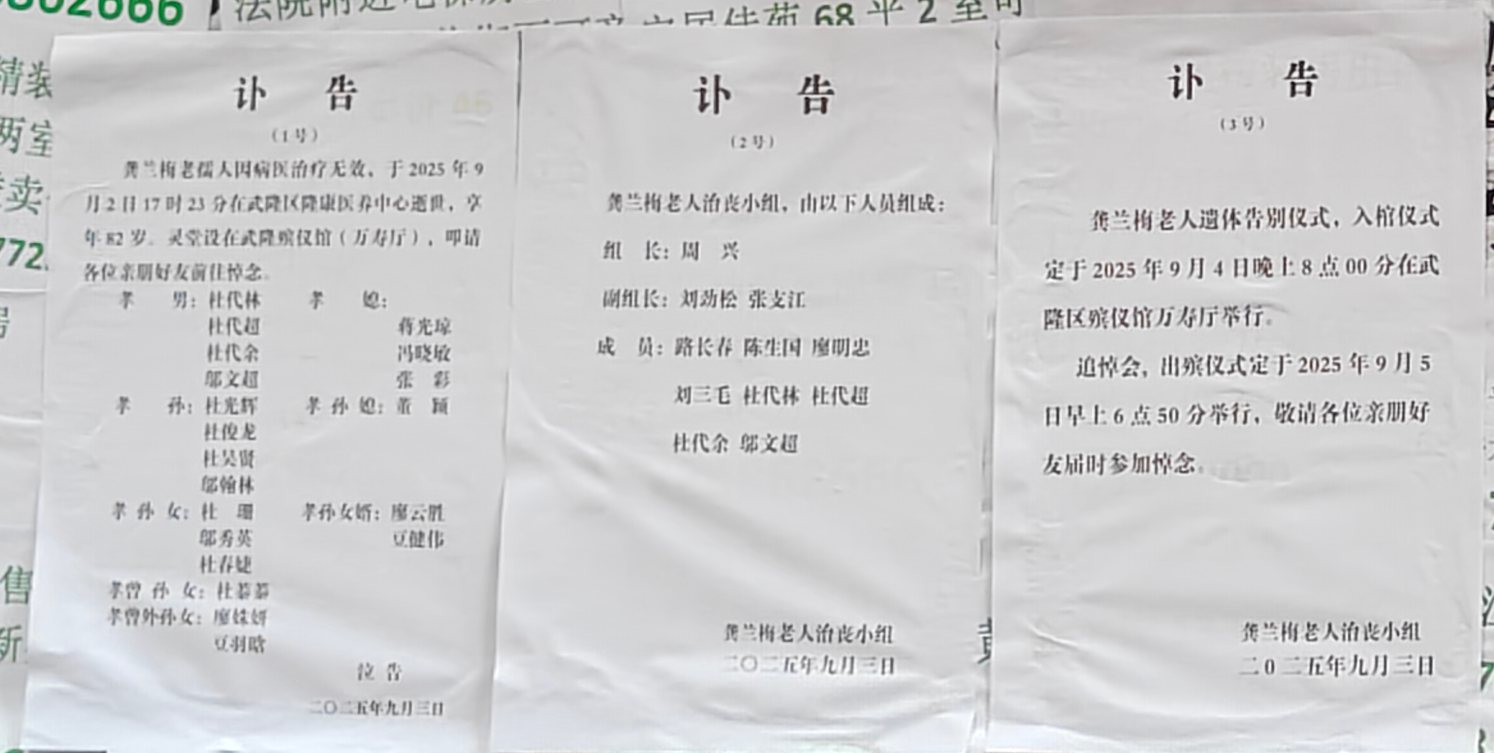 802666
68平2室
精装
两室
卖
772
售
新
讣 告
（1号）
龚兰梅老孺人因病医治疗无效，于2025年9
月2日17时23分在武隆区隆康医养中心逝世，享
年82岁。灵堂设在武隆殡仪馆（万寿厅），叩请
各位亲朋好友前往悼念。
孝 男：杜代林 孝 媳：
杜代超 蒋光琼
杜代余 冯晓敏
邬文超 张 彩
孝 孙：杜光辉 孝 孙 媳：董 颖
杜俊龙
杜昊贤
邬翰林
孝 孙 女：杜 珊 孝孙女婿：廖云胜
邬秀英 豆健伟
杜春婕
孝曾 孙 女：杜
孝曾外孙女：廖姝妍
豆羽晗
泣 告
二〇二五年九月三日
讣 告
（2号）
龚兰梅老人治丧小组，由以下人员组成：
组 长：周 兴
副组长：刘劲松 张支江
成 员：路长春 陈生国 廖明忠
刘三毛 杜代林 杜代超
杜代余 邬文超
龚兰梅老人治丧小组
二〇二五年九月三日
讣 告
（3号）
龚兰梅老人遗体告别仪式，入棺仪式
定于2025年9月4日晚上8点00分在武
隆区殡仪馆万寿厅举行。
追悼会，出殡仪式定于2025年9月5
日早上6点50分举行，敬请各位亲朋好
友届时参加悼念。
龚兰梅老人治丧小组
二0二五年九月三日